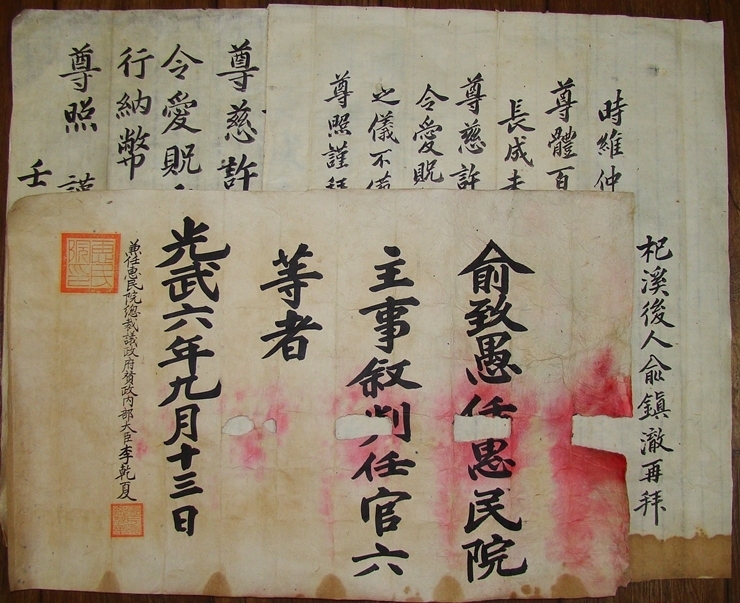 杞溪後人俞鎭澈再拜
時維仲
尊體百
長成未
尊慈許
令愛貺
之儀不
尊照謹拜
尊慈許
令愛貺
行納幣
尊照 謹
壬
俞致愚任惠民院
主事叙判任官六
等者
光武六年九月十三日
兼任惠民院總裁議政府贊政內部大臣李乾夏